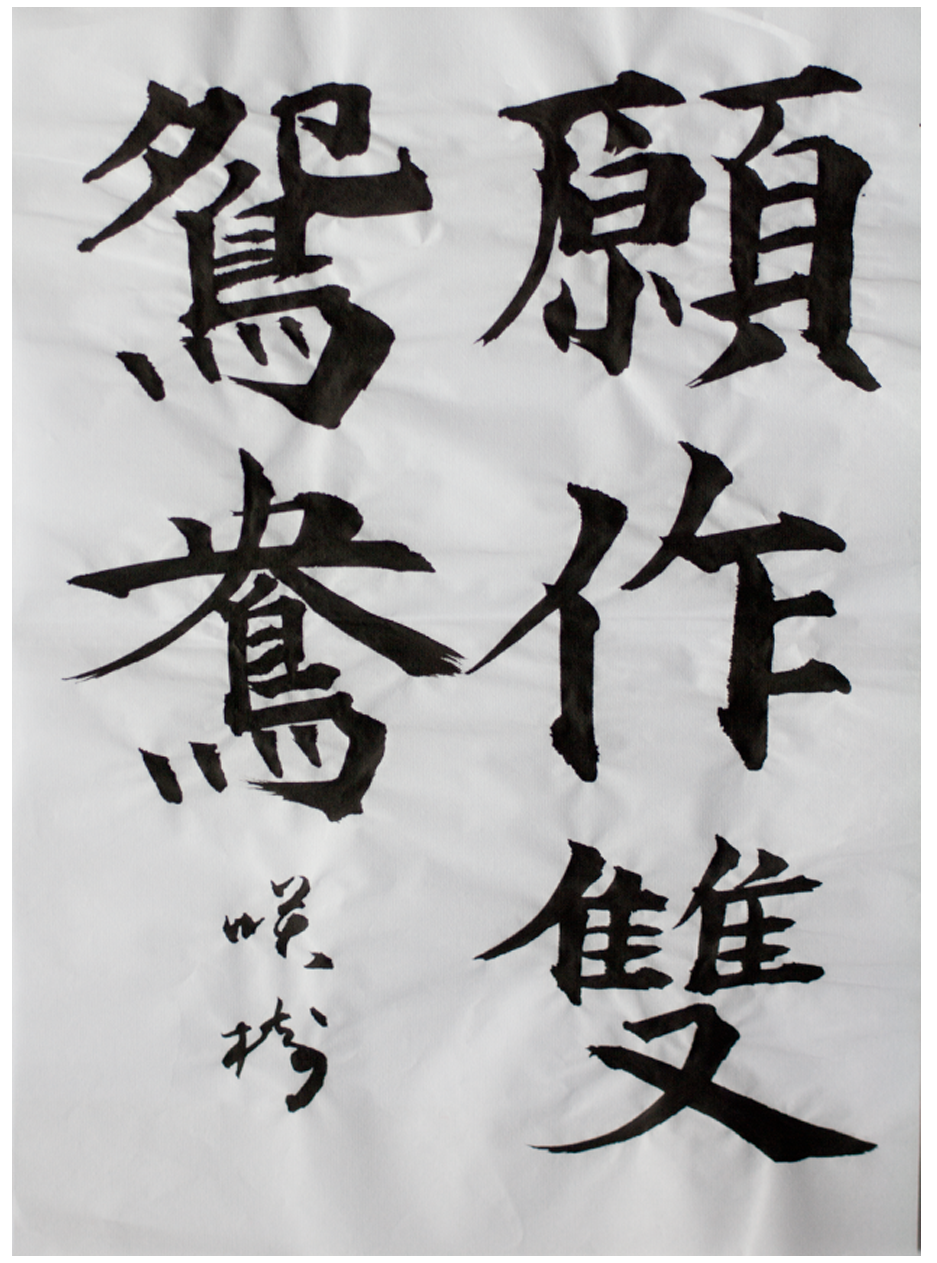 願作雙
鴛鴦
咲樹